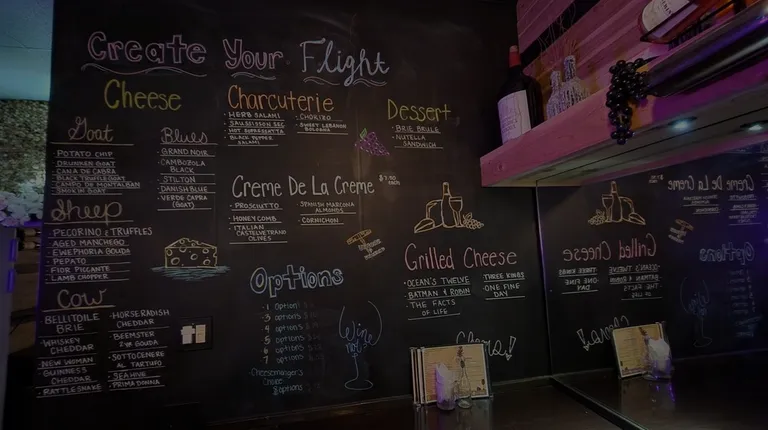 Create Your Flight
Cheese
Goat
POTATO CHIP
DRUNKEN GOAT
CANA DE CABRA
BLACK TRUFFLE GOAT
CAMPO DE MONTALBAN
SMOKIN GOAT
Blues
GRAND NOIR
CAMBOZOLA
BLACK
STILTON
DANISH BLUE
VERDE CAPRA
(GOAT)
Sheep
PECORINO & TRUFFLES
AGED MANCHEGO
EWEPHORIA GOUDA
PEPATO
FIOR PICCANTE
LAMB CHOPPER
Cow
BELLITDILE
BRIE
WHISKEY
CHEDDAR
NEW WOMAN
GUINNESS
CHEDDAR
RATTLESNAKE
HORSERADISH
CHEDDAR
BEEMSTER
GOUDA
SOTTOCENERE
AL TARTUFO
SEA HIVE
PRIMA DONNA
Charcuterie
HERB SALAMI
SAUSISSON SEC
HOT SOPRESSETTA
BLACK PEPPER
SALAMI
CHORIZO
SWEET LEBANON
BOLOGNA
Dessert
BRIE BRULE
NUTELLA
SANDWICH
Creme De La Creme
PROSCIUTTO
HONEYCOMB
ITALIAN
CASTELVETRANO
OLIVES
SPANISH MARCONA
ALMONDS
CORNICHON
Grilled Cheese
OCEAN'S TWELVE
BATMAN & ROBIN
THE FACTS
OF LIFE
THREE KINGS
ONE FINE
DAY
Options
1 option
3 options
4 options
5 options
6 options
7 options
Cheesemonger's
Choice
options
Wine
not?